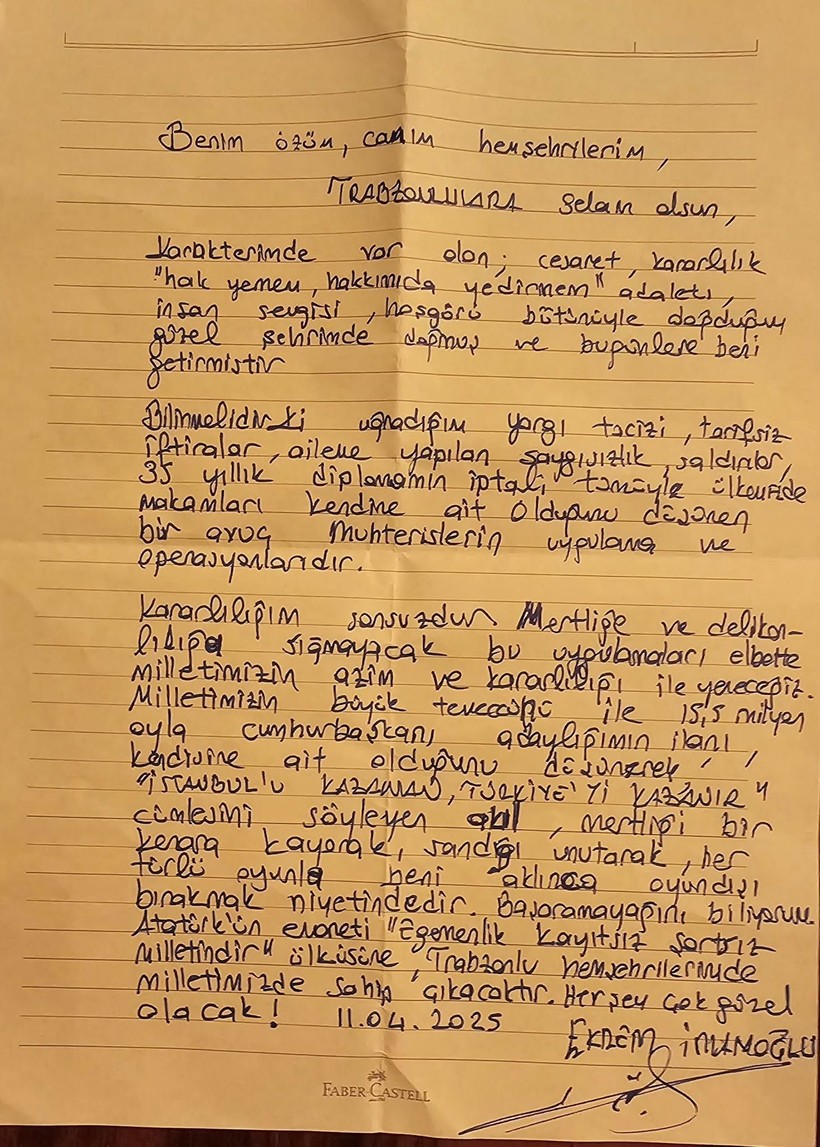 Benim özüm, canım hemşehrilerim,
TRABZONLULARA selam olsun,
Karakterimde var olan; cesaret, kararlılık
"hak yemem, hakkımıda yedirmem" adaleti,
insan sevgisi, hoşgörü bütünüyle doğduğum
güzel şehrimde doğmuş ve bugünlere beni
getirmiştir
Bilinmelidir ki uğradığım yargı tacizi, tarifsiz
iftiralar, aileme yapılan saygısızlık, saldırılar,
35 yıllık diplomamın iptali tamüyle ülkemizde
makamları kendine ait olduğunu düşünen
bir avuç muhterislerin uygulama ve
operasyonlarıdır.
Kararlılığım sonsuzdur. Mertliğe ve delikan-
lılığa sığmayacak bu uygulamaları elbette
milletimizin azim ve kararlılığı ile yeneceğiz.
Milletimizin büyük teveccühü ile 15,5 milyon
oyla cumhurbaşkanı adaylığımın ilanı,
kendisine ait olduğunu düşünerek
"İSTANBUL'U KAZANAN, TÜRKİYE'Yİ KAZANIR"
cümlesini söyleyen akıl, mertliği bir
kenara kayarak, sandığı unutarak, her
türlü oyunla beni aklınca oyundışı
bırakmak niyetindedir. Başaramayağını biliyorum.
Atatürk'ün emaneti "Egemenlik kayıtsız şartsız
milletindir" ülküsüne, Trabzonlu hemşehrilerimde
milletimizde sahip çıkacaktır. Herşey çok güzel
olacak! 11.04.2025
EKREM İMAMOĞLU
FABER-CASTELL